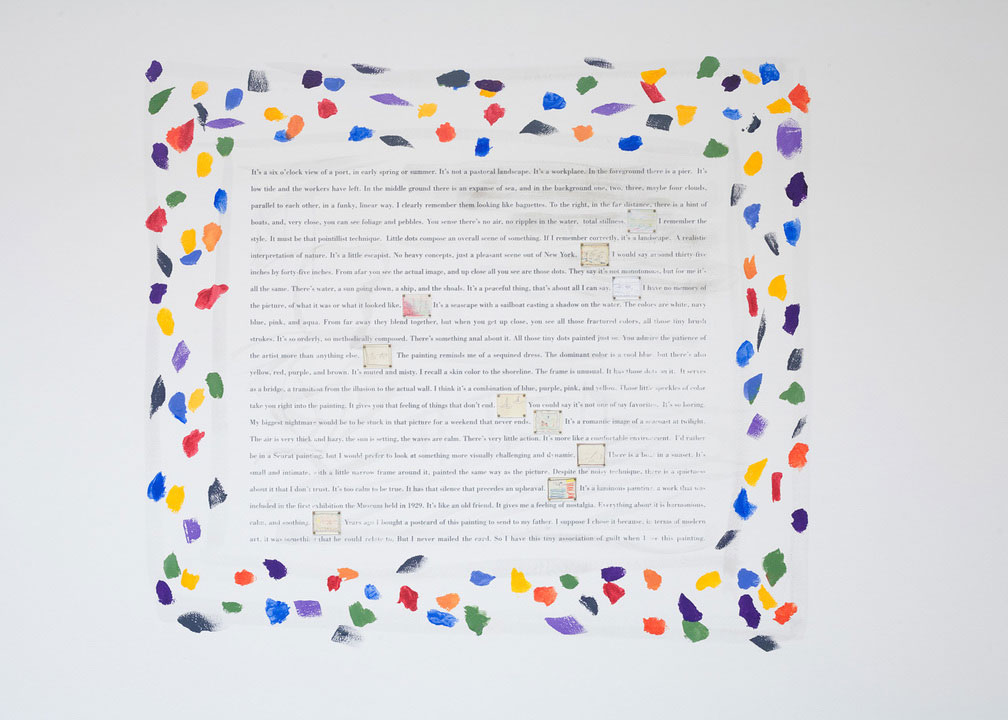 It's a six o'clock view of a port, in early spring or summer. It's not a pastoral landscape. It's a workplace. In the foreground there is a pier. It's
low tide and the workers have left. In the middle ground there is an expanse of sea, and in the background one, two, three, maybe four clouds,
parallel to each other, in a funky, linear way. I clearly remember them looking like baguettes. To the right, in the far distance, there is a hint of
boats, and, very close, you can see foliage and pebbles. You sense there's no air, no ripples in the water, total stillness. I remember the
style. It must be that pointillist technique. Little dots compose an overall scene of something. If I remember correctly, it's a landscape. A realistic
interpretation of nature. It's a little escapist. No heavy concepts, just a pleasant scene out of New York. I would say around thirty-five
inches by forty-five inches. From afar you see the actual image, and up close all you see are those dots. They say it's not monotonous, but for me it's
all the same. There's water, a sun going down, a ship, and the shoals. It's a peaceful thing, that's about all I can say. I have no memory of
the picture, of what it was or what it looked like. It's a seascape with a sailboat casting a shadow on the water. The colors are white, navy
blue, pink, and aqua. From far away they blend together, but when you get up close, you see all those fractured colors, all those tiny brush
strokes. It's so orderly, so methodically composed. There's something anal about it. All those tiny dots painted just so. You admire the patience of
the artist more than anything else. The painting reminds me of a sequined dress. The dominant color is a cool blue, but there's also
yellow, red, purple, and brown. It's muted and misty. I recall a skin color to the shoreline. The frame is unusual. It has those dots on it. It serves
as a bridge, a transition from the illusion to the actual wall. I think it's a combination of blue, purple, pink, and yellow. Those little speckles of color
take you right into the painting. It gives you that feeling of things that don't end. You could say it's not one of my favorites. It's so boring.
My biggest nightmare would be to be stuck in that picture for a weekend that never ends. It's a romantic image of a seacoast at twilight.
The air is very thick and hazy, the sun is setting, the waves are calm. There's very little action. It's more like a comfortable environment. I'd rather
be in a Seurat painting, but I would prefer to look at something more visually challenging and dynamic. There is a boat in a sunset. It's
small and intimate, with a little narrow frame around it, painted the same way as the picture. Despite the noisy technique, there is a quietness
about it that I don't trust. It's too calm to be true. It has that silence that precedes an upheaval. It's a luminous painting, a work that was
included in the first exhibition the Museum held in 1929. It's like an old friend. It gives me a feeling of nostalgia. Everything about it is harmonious,
calm, and soothing. Years ago I bought a postcard of this painting to send to my father. I suppose I chose it because, in terms of modern
art, it was something that he could relate to. But I never mailed the card. So I have this tiny association of guilt when I see this painting.